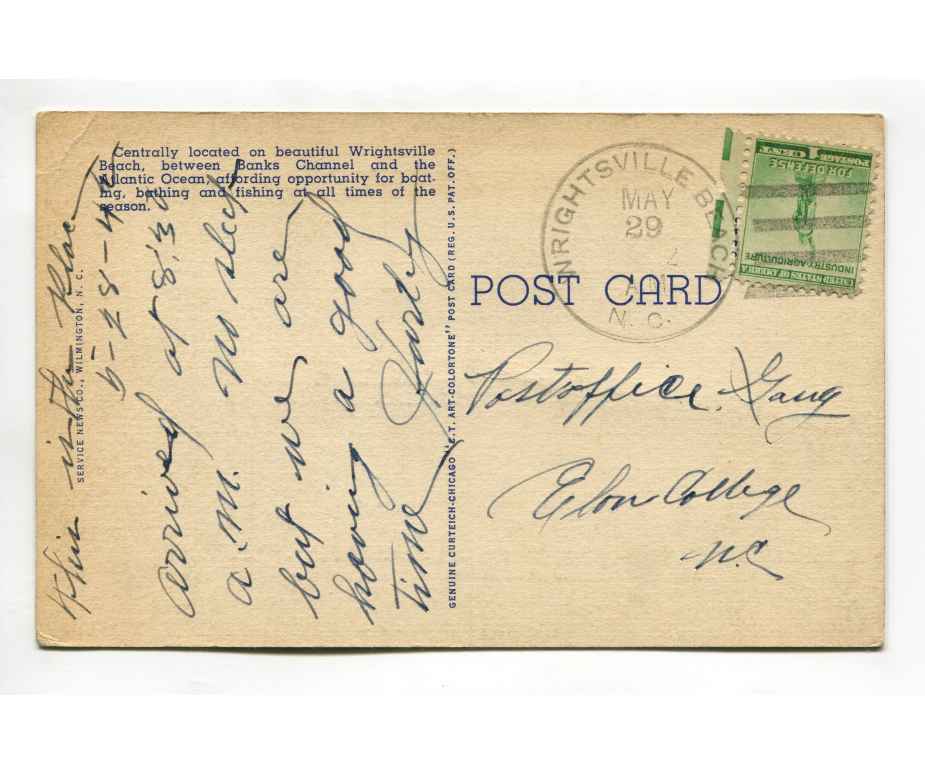 Centrally located on beautiful Wrightsville
Beach, between Banks Channel and the
Atlantic Ocean, affording opportunity for boat-
ing, bathing and fishing at all times of the
season.
This is the place
5-28-42
arrived at 8:30
a.m. no sleep
but we are
having a good
time
SERVICE NEWS CO., WILMINGTON, N. C.
GENUINE CURTEICH-CHICAGO "C.T. ART-COLORTONE" POST CARD (REG. U.S. PAT. OFF.)
WRIGHTSVILLE BEACH
MAY
29
N. C.
POST CARD
UNITED STATES OF AMERICA
INDUSTRY·AGRICULTURE
FOR DEFENSE
1 CENT 1 POSTAGE
Postoffice Gang
Elon College
N.C.